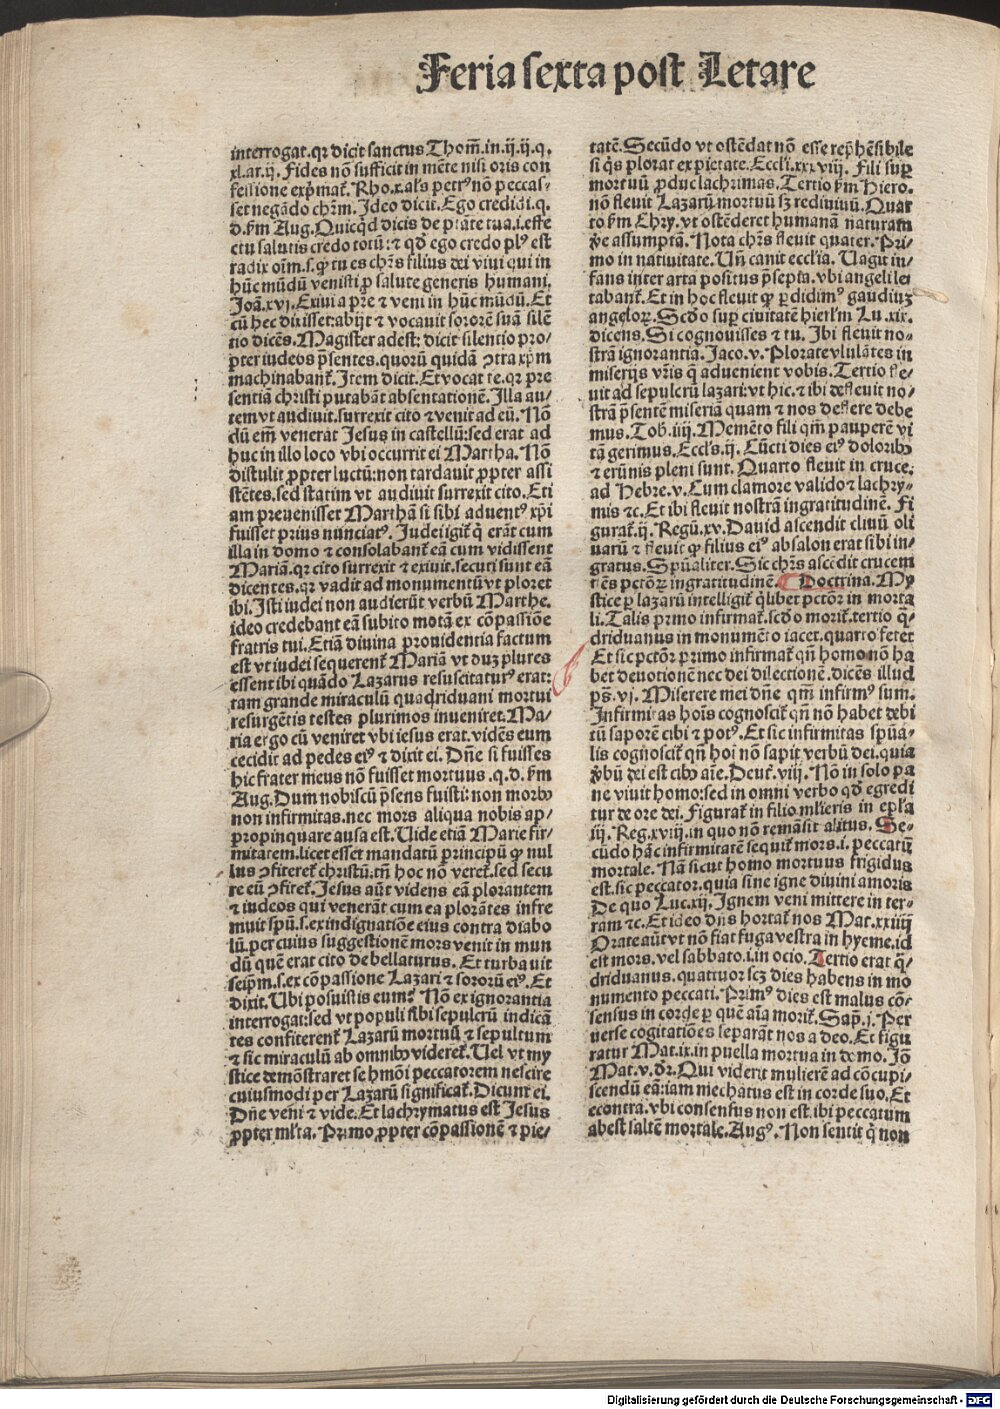 Feria sexta post Letare
interrogat. qr dicit sanctus Thom̃. in. ij. ij. q.
xl. ar. ij. Fides nō sufficit in mēte nisi oris con
fessione exp̄mat̄. Rho. x. als petrꝰ nō peccas⸗
set negādo chr̄m. Ideo dicit. Ego credidi. q.
d. km̄ Aug. Quicq̇d dicis de pietate tua. i. effe
ctu salutis credo totū: ⁊ qđ ego credo plꝰ est
radix oīm. s. ꝙ tu es chr̄s filius dei viui qui in
hūc mūdū venisti ꝓ salute generis humani.
Joā. xvj. Exiui a pr̄e ⁊ veni in hūc mūdū. Et
cū hec dixisset: abijt ⁊ vocauit sororē suā silē
tio dicēs. Magister adest: dicit silentio pro⸗
pter iudeos p̄sentes. quorū quidā ↄtra xp̄m
machinabant̄. Item dicit. Et vocat te. qr pre
sentiā christi putabāt absentationē. Illa au⸗
tem vt audiuit. surrexit cito ⁊ venit ad eū. Nō
dū em̄ venerat Jesus in castellū: sed erat ad
huc in illo loco vbi occurrit ei Martha. Nō
distulit ꝓpter luctū: non tardauit ꝓpter assi
stētes. sed statim vt audiuit surrexit cito. Eti
am preuenisset Marthā si sibi aduentꝰ xp̄i
fuisset prius nunciatꝰ. Judei igit̄ q̇ erāt cum
illa in domo ⁊ consolabant̄ eā cum vidissent
Mariā. qr cito surrexit ⁊ exiuit. secuti sunt eā
dicentes. qr vadit ad monumentū vt ploret
ibi. Isti iudei non audierūt verbū Marthe.
ideo credebant eā subito motā ex cōpassiōe
fratris sui. Etiā diuina prouidentia factum
est vt iudei sequerent̄ Mariā vt duꝫ plures
essent ibi quādo Lazarus resuscitaturꝰ erat:
tam grande miraculū quadriduani mortui
resurgētis testes plurimos inueniret. Ma⸗
ria ergo cū veniret vbi iesus erat. vidēs eum
cecidit ad pedes eiꝰ ⁊ dixit ei. Dn̄e si fuisses
hic frater meus nō fuisset mortuus. q. d. km̄
Aug. Dum nobiscū p̄sens fuisti: non morbꝰ
non infirmitas. nec mors aliqua nobis ap⸗
propinquare ausa est. Uide etiā Marie fir⸗
mitatem. licet esset mandatū principū ꝙ nul
lus ↄfiteret̄ christū: tn̄ hoc nō veret̄. sed secu
re eū ↄfitet̄. Jesus aūt videns eā plorantem
⁊ iudeos qui venerāt cum ea plorātes infre
muit spū. s. ex indignatiōe eius contra diabo
lū. per cuius suggestionē mors venit in mun
dū quē erat cito debellaturus. Et turbauit
seip̄m. s. ex cōpassione Lazari ⁊ sororū eiꝰ. Et
dixit. Ubi posuistis eum? Nō ex ignorantia
interrogat: sed vt populi sibi sepulcrū indicā
tes confiterent̄ Lazarū mortuū ⁊ sepultum
⁊ sic miraculū ab omnibꝰ videret̄. Uel vt my
stice demōstraret se hm̄oi peccatorem nescire
cuiusmodi per Lazarū significat̄. Dicunt ei.
Dn̄e veni ⁊ vide. Et lachrymatus est Jesus
ꝓpter ml̄ta. Primo ꝓpter cōpassionē ⁊ pie⸗
tatē. Secūdo vt ostēdat nō esse repͥhēsibile
si q̇s plorat ex pietate. Eccl̄i. xxxviij. Fili suꝑ
mortuū ꝓduc lachrimas. Tertio km̄ Hiero.
nō fleuit Lazarū mortuū sꝫ rediuiuū. Quar
to km̄ Chry. vt ostēderet humanā naturam
ṽe assumptā. Nota chr̄s fleuit quater. Pri⸗
mo in natiuitate. Un̄ canit eccl̄ia. Uagit in⸗
fans inter arta positus p̄sepia. vbi angeli le
tabant̄. Et in hoc fleuit ꝙ ꝑdidimꝰ gaudiuꝫ
angeloꝝ. Scd̄o suꝑ ciuitatē hierl̄m Lu. xix.
dicens. Si cognouisses ⁊ tu. Ibi fleuit no⸗
strā ignorantia. Jaco. v. Plorate vlulātes in
miserijs vr̄is q̄ aduenient vobis. Tertio fle⸗
uit ad sepulcrū lazari: vt hic. ⁊ ibi defleuit no⸗
strā p̄sentē miseriā quam ⁊ nos deflere debe
mus. Tob. iiij. Memēto fili qm̄ pauperē vi
tā gerimus. Eccl̄s. ij. Cūcti dies eiꝰ doloribꝰ
⁊ erūnis pleni sunt. Quarto fleuit in cruce.
ad Hebre. v. Cum clamore valido ⁊ lachry⸗
mis ⁊c. Et ibi fleuit nostrā ingratitudinē. Fi
gurat̄. ij. Regū. xv. Dauid ascendit cliuū oli
uarū ⁊ fleuit ꝙ filius eiꝰ absalon erat sibi in⸗
gratus. Spūaliter. Sic chr̄s ascēdit crucem
flēs pctōꝝ ingratitudinē. Doctrina. My
stice ꝑ lazarū intelligit̄ q̇libet pctōr in morta
li. Talis prmo infirmat̄. scd̄o morit̄. tertio q̄⸗
driduanus in monumēto iacet. quarto fetet
Et sic pctōr primo infirmat̄ qn̄ homo nō ha
bet deuotionē nec dei dilectionē. dicēs illud
ps̄. vj. Miserere mei dn̄e qm̄ infirmꝰ sum.
Infirmitas hoīs cognoscit̄ qn̄ nō habet debi
tū saporē cibi ⁊ potꝰ. Et sic infirmitas spūa⸗
lis cognoscit̄ qn̄ hoi nō sapit verbū dei. quia
ṽbū dei est cibꝰ aīe. Deut̄. viij. Nō in solo pa
ne viuit homo: sed in omni verbo qđ egredi
tur de ore dei. Figurat̄ in filio ml̄ieris in ep̄la
iij. Reg. xviij. in quo nō remāsit alitus. Se⸗
cūdo hāc infirmitatē sequit̄ mors. i. peccatū
mortale. Nā sicut homo mortuus frigidus
est. sic peccator. quia sine igne diuini amoris
De quo Luc. xij. Ignem veni mittere in ter⸗
ram ⁊c. Et ideo dn̄s hortat̄ nos Mat. xxiiij
Orate aūt vt nō fiat fuga vestra in hyeme. id
est mors. vel sabbato. i. in ocio. Tertio erat q̄⸗
driduanus. quattuor scꝫ dies habens in mo
numento peccati. Primꝰ dies est malus cō⸗
sensus in corde ꝑ quē aīa morit̄. Sap̄. j. Per
uerse cogitatiōes separāt nos a deo. Et figu
ratur Mat. ix. in puella mortua in domo. Jō
Mat. v. dr̄. Qui viderit mulierē ad cōcupi⸗
scendū eā: iam mechatus est in corde suo. Et
econtra. vbi consensus non est. ibi peccatum
abest saltē mortale. Augꝰ. Non sentit q̇ non
Digitalisierung gefördert durch die Deutsche Forschungsgemeinschaft - DFG